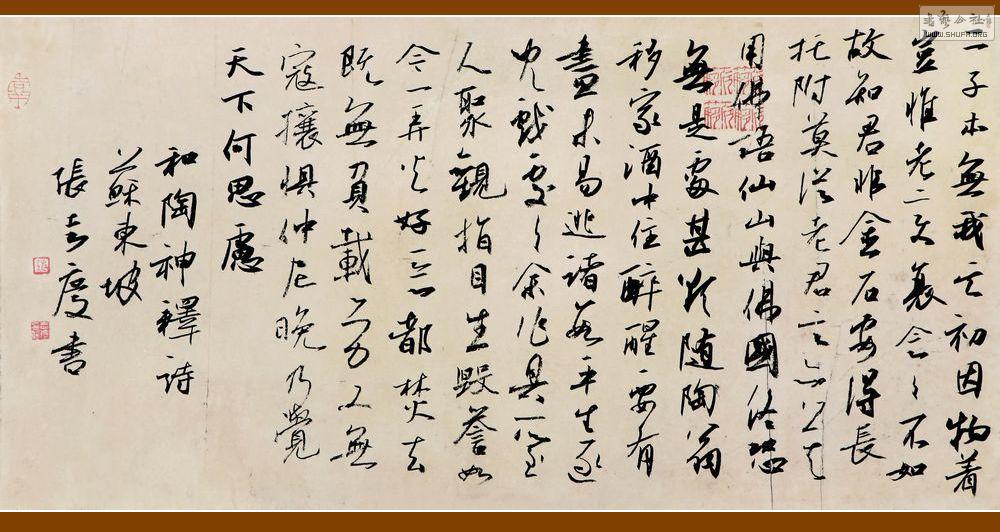 二子本無我其初因物着
豈惟老變衰念々不如
故知君非金石安得長
托附莫從老君言亦莫
用佛語仙山與佛國終恐
無是處甚欲随陶翁
移家酒中住醉醒要有
盡未易逃諸數平生逐
兒戲處々余作具所至
人聚觀指目生毀譽如
今一弄火好惡都焚去
既無負載勞又無
寇攘懼仲尼晚乃覺
天下何思慮
和陶神釋詩
蘇東坡
張慶書
書藝公社
WWW.SHUFA.ORG